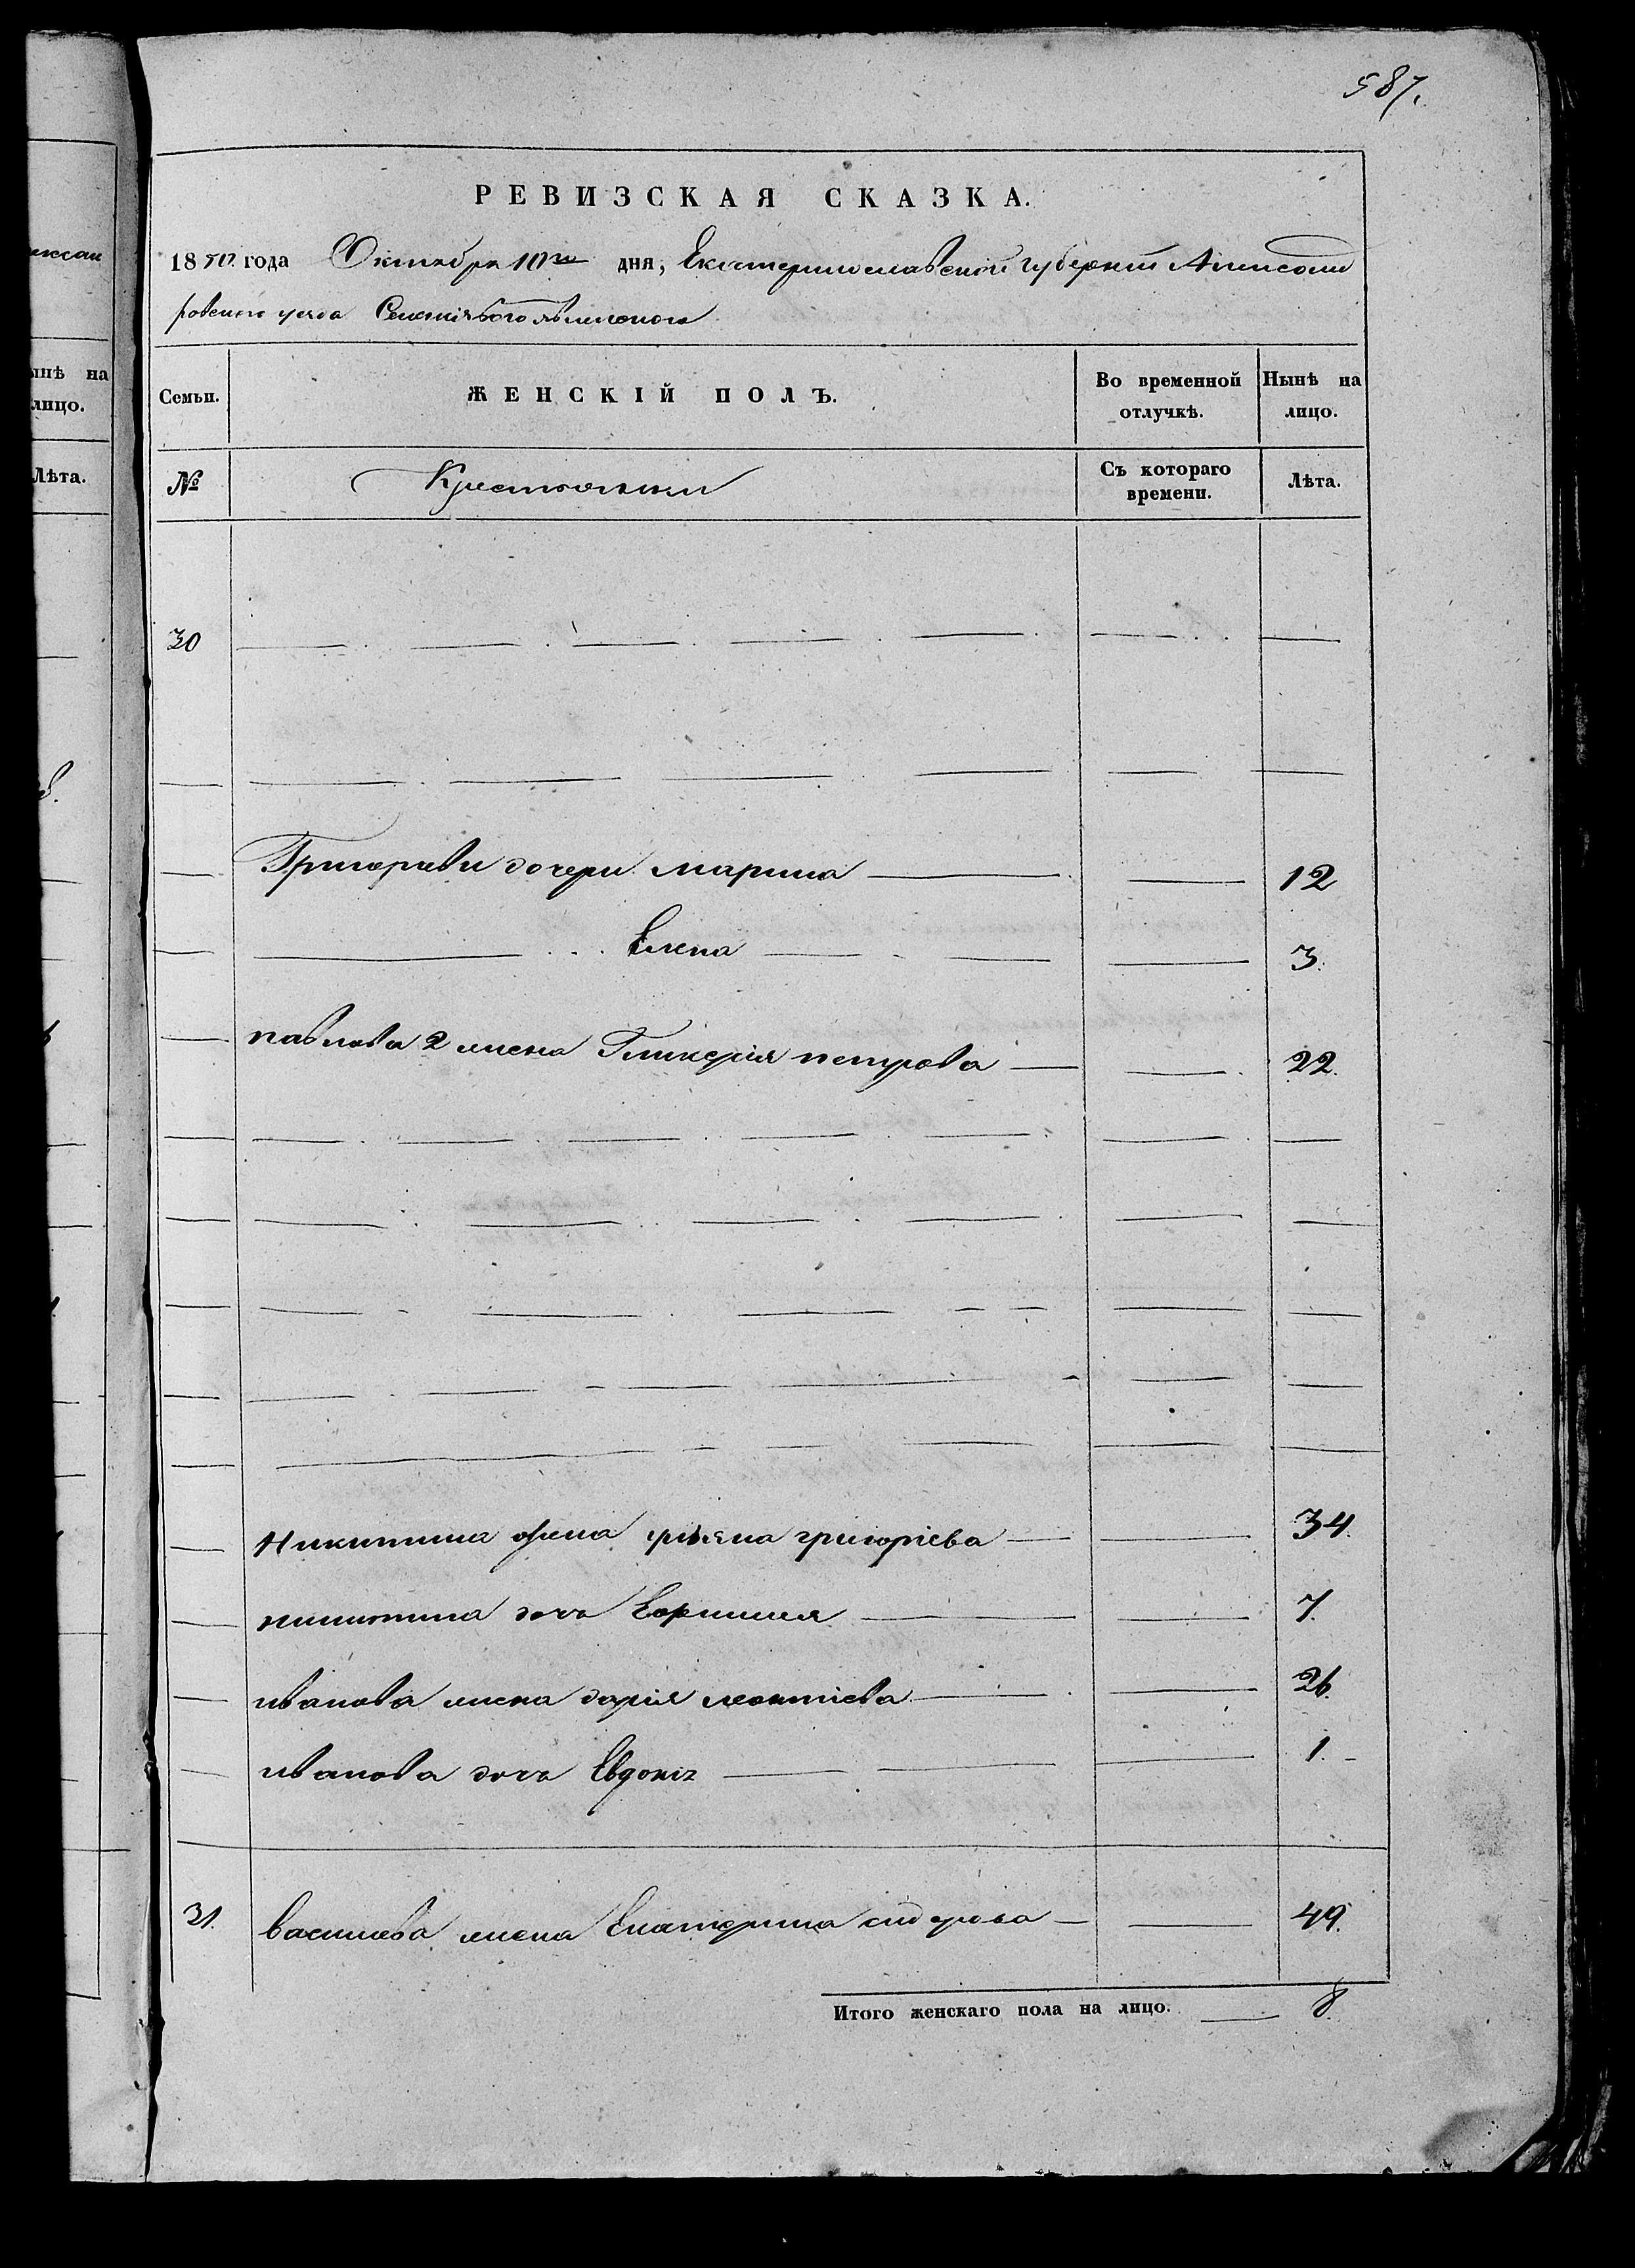 587.
РЕВИЗСКАЯ СКАЗКА.
1850 года Октября 10го дня, Екатеринославской губерніи Александ
ровскаго уезда Селенія
Семьи. ЖЕНСКІЙ ПОЛЪ. Во временной отлучкѣ. Нынѣ на лицо.
№ Крестьянки Съ котораго времени. Лѣта.
30
Григорьевы дочери марина 12
Елена 3.
павлова 2 жена Гликерія петрова 22.
Никитина жена григоріева 34.
никитина дочь 7.
иванова жена дарія леонтіева 26.
иванова дочь Евдокія 1.
31. василева жена Екатерина сидорова 49.
Итого женскаго пола на лицо. 8.
ынѣ на
лицо.
Лѣта.